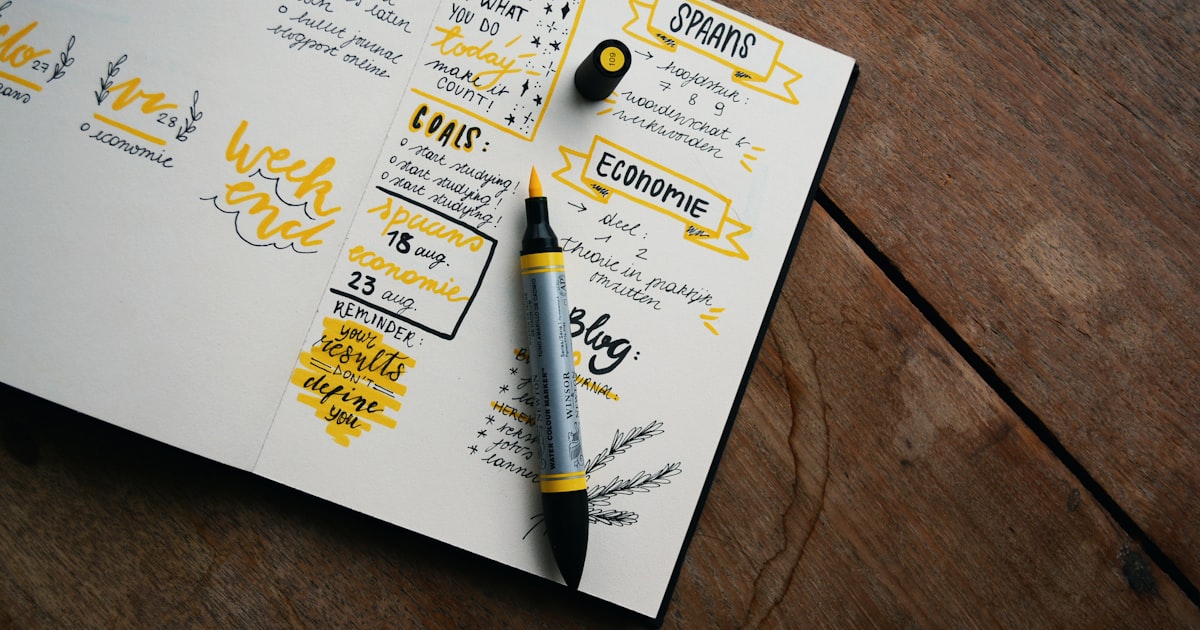 laten
o bullet journal
blogpost online
do 27
vr 28
o economie
week
end
WHAT
YOU DO
today
make it
COUNT!
GOALS:
o start studying!
o start studying!
o start studying!
spaans
18 aug.
economie
23 aug.
REMINDER:
your
results
DON'T
define
you
109
SPAANS
→ hoofdstuk:
7 8 9
woordenschat &
werkwoorden
ECONOMIE
→ deel:
1 2
theorie in praktijk
omzetten
Blog:
WATER COLOUR MARKER
WINSOR